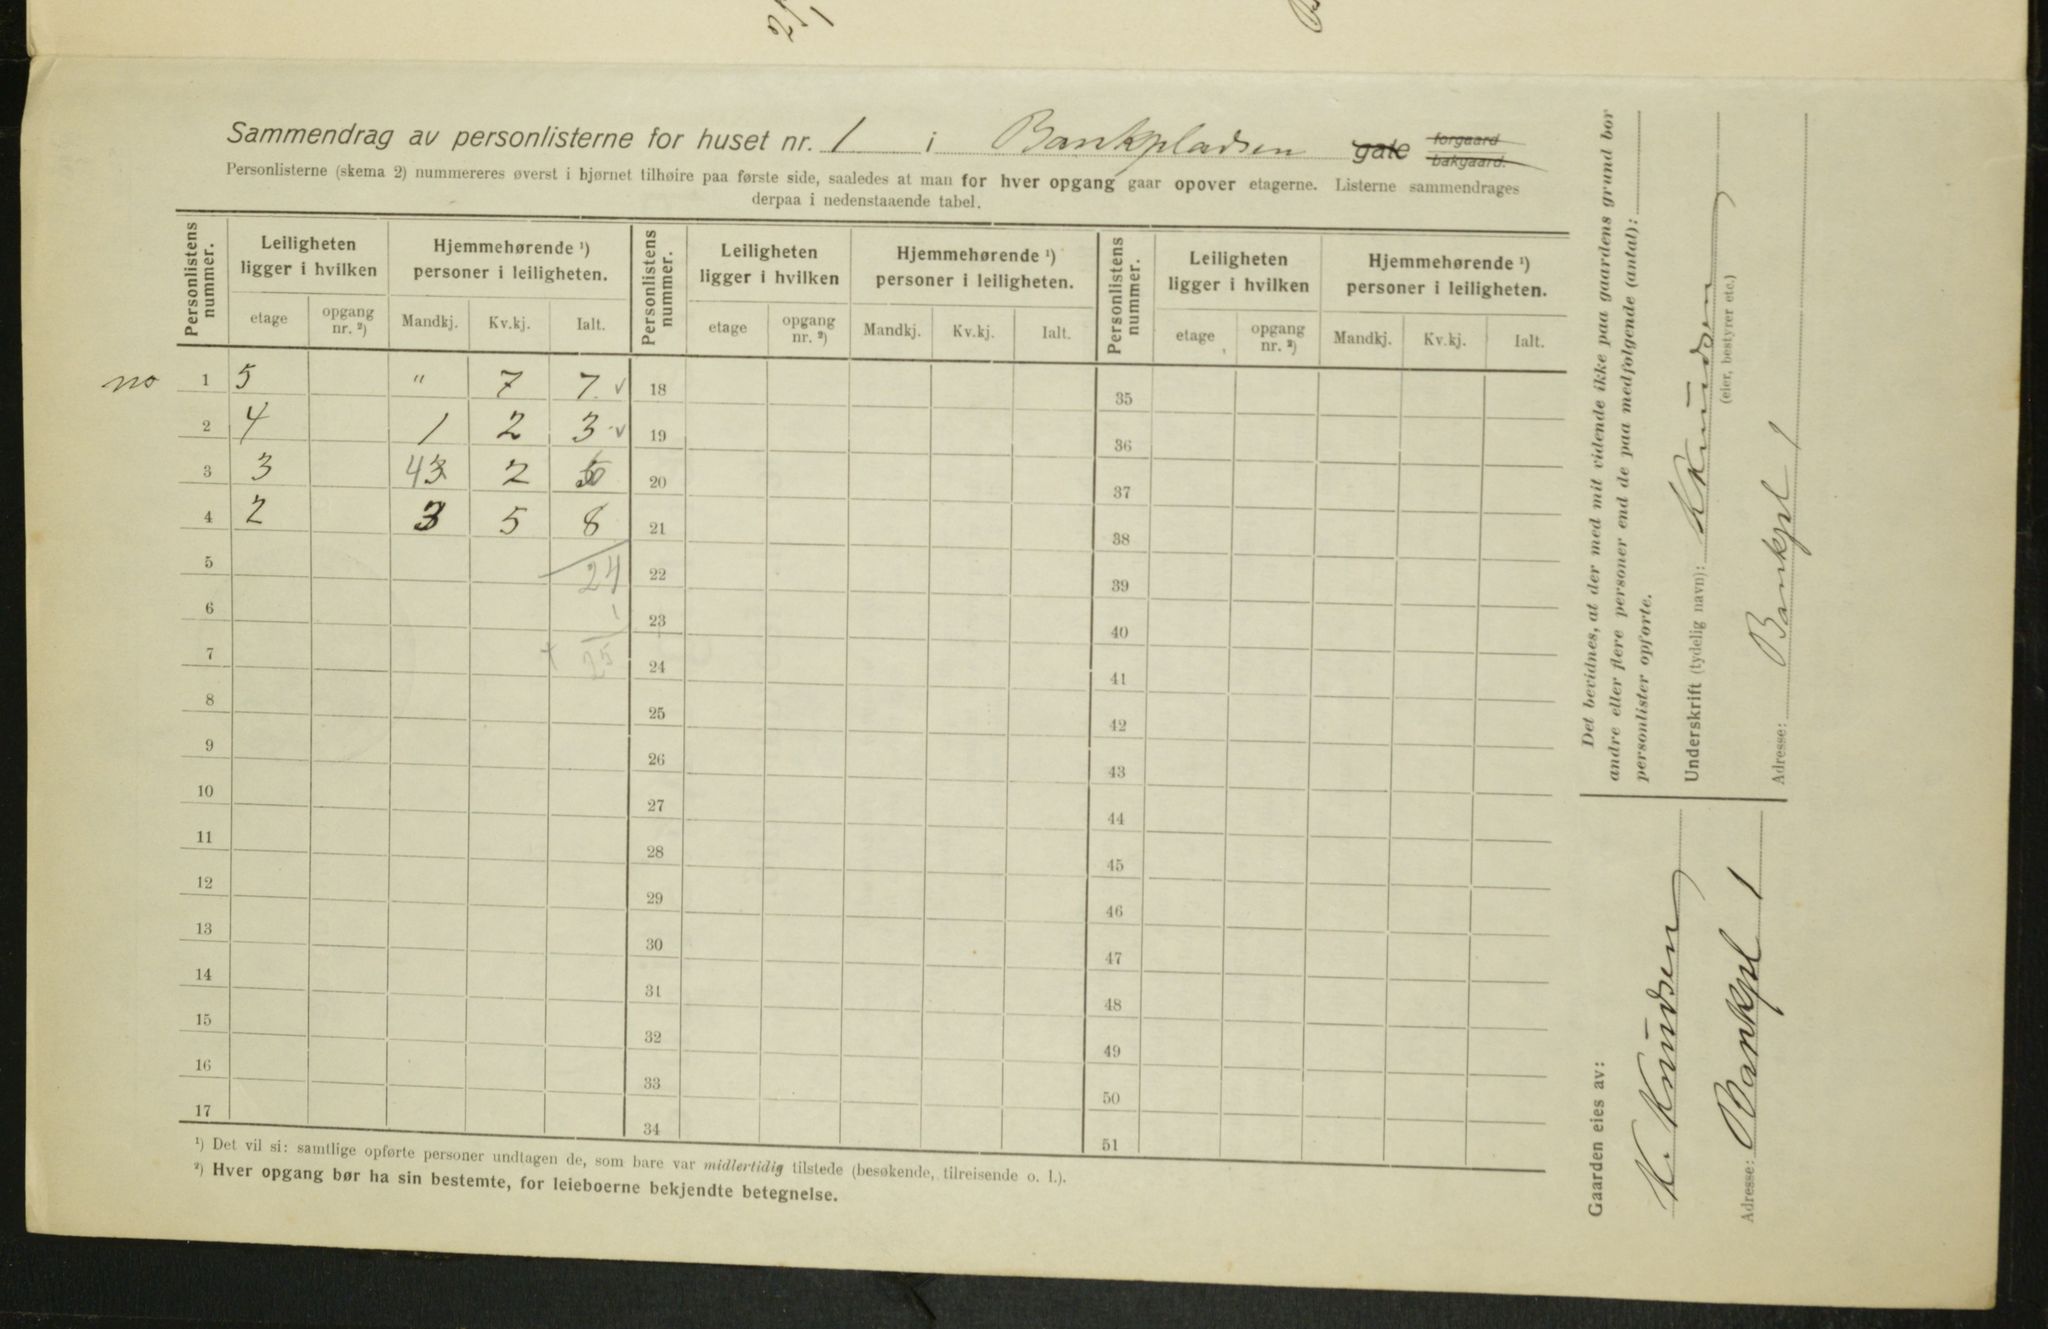 Sammendrag av personlisterne for huset nr. 1 i Bankpladsen gate forgaard bakgaard.
Personlisterne (skema 2) nummereres øverst i hjørnet tilhøire paa første side, saaledes at man for hver opgang gaar opover etagerne. Listerne sammendrages
derpaa i nedenstaaende tabel.
Personlistens nummer. Leiligheten ligger i hvilken Hjemmehørende ¹) personer i leiligheten. Personlistens nummer. Leiligheten ligger i hvilken Hjemmehørende ¹) personer i leiligheten. Personlistens nummer. Leiligheten ligger i hvilken Hjemmehørende ¹) personer i leiligheten.
etage opgang nr. ²) Mandkj. Kv.kj. Ialt. etage opgang nr. ²) Mandkj. Kv.kj. Ialt. etage opgang nr. ²) Mandkj. Kv.kj. Ialt.
no 1 5 " 7 7 v 18 35
2 4 1 2 3 v 19 36
3 3 43 2 20 37
4 2 3 5 8 21 38
5 24 22 39
6 1 23 40
7 25 24 41
8 25 42
9 26 43
10 27 44
11 28 45
12 29 46
13 30 47
14 31 48
15 32 49
16 33 50
17 34 51
¹) Det vil si: samtlige opførte personer undtagen de, som bare var midlertidig tilstede (besøkende, tilreisende o. l.).
²) Hver opgang bør ha sin bestemte, for leieboerne bekjendte betegnelse.
Det bevidnes, at der med mit vidende ikke paa gaardens grund bor
andre eller flere personer end de paa medfølgende (antal):
personlister opførte.
Underskrift (tydelig navn): K Knudsen
(eier, bestyrer etc.)
Adresse: Bankpl 1
Gaarden eies av:
K. Knudsen
Adresse: Bankpl 1